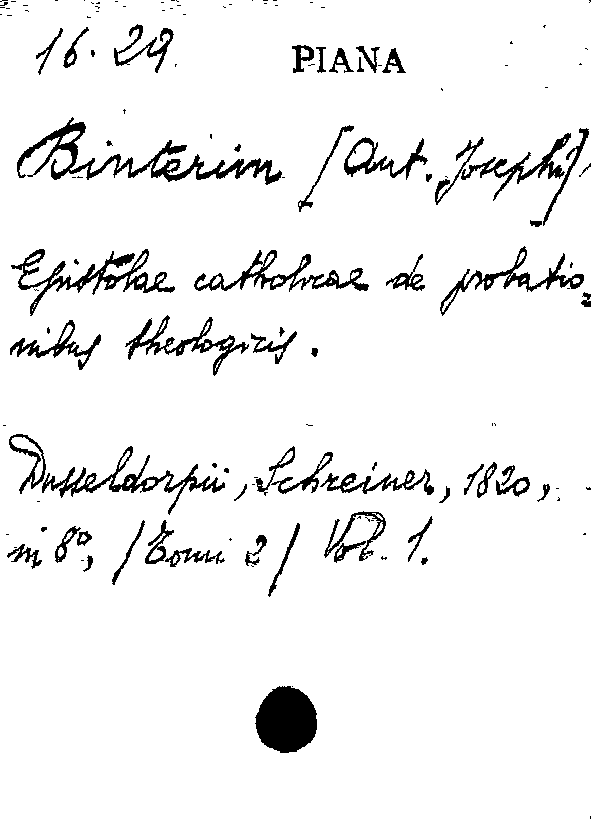 16. 29. PIANA
Binterim [Ant. Joseph]
Epistolae catholicae de probatio=
nibus theologicis.
Dusseldorpii, Schreiner, 1820,
in 8°, /Tomi 2/ Vol. 1.